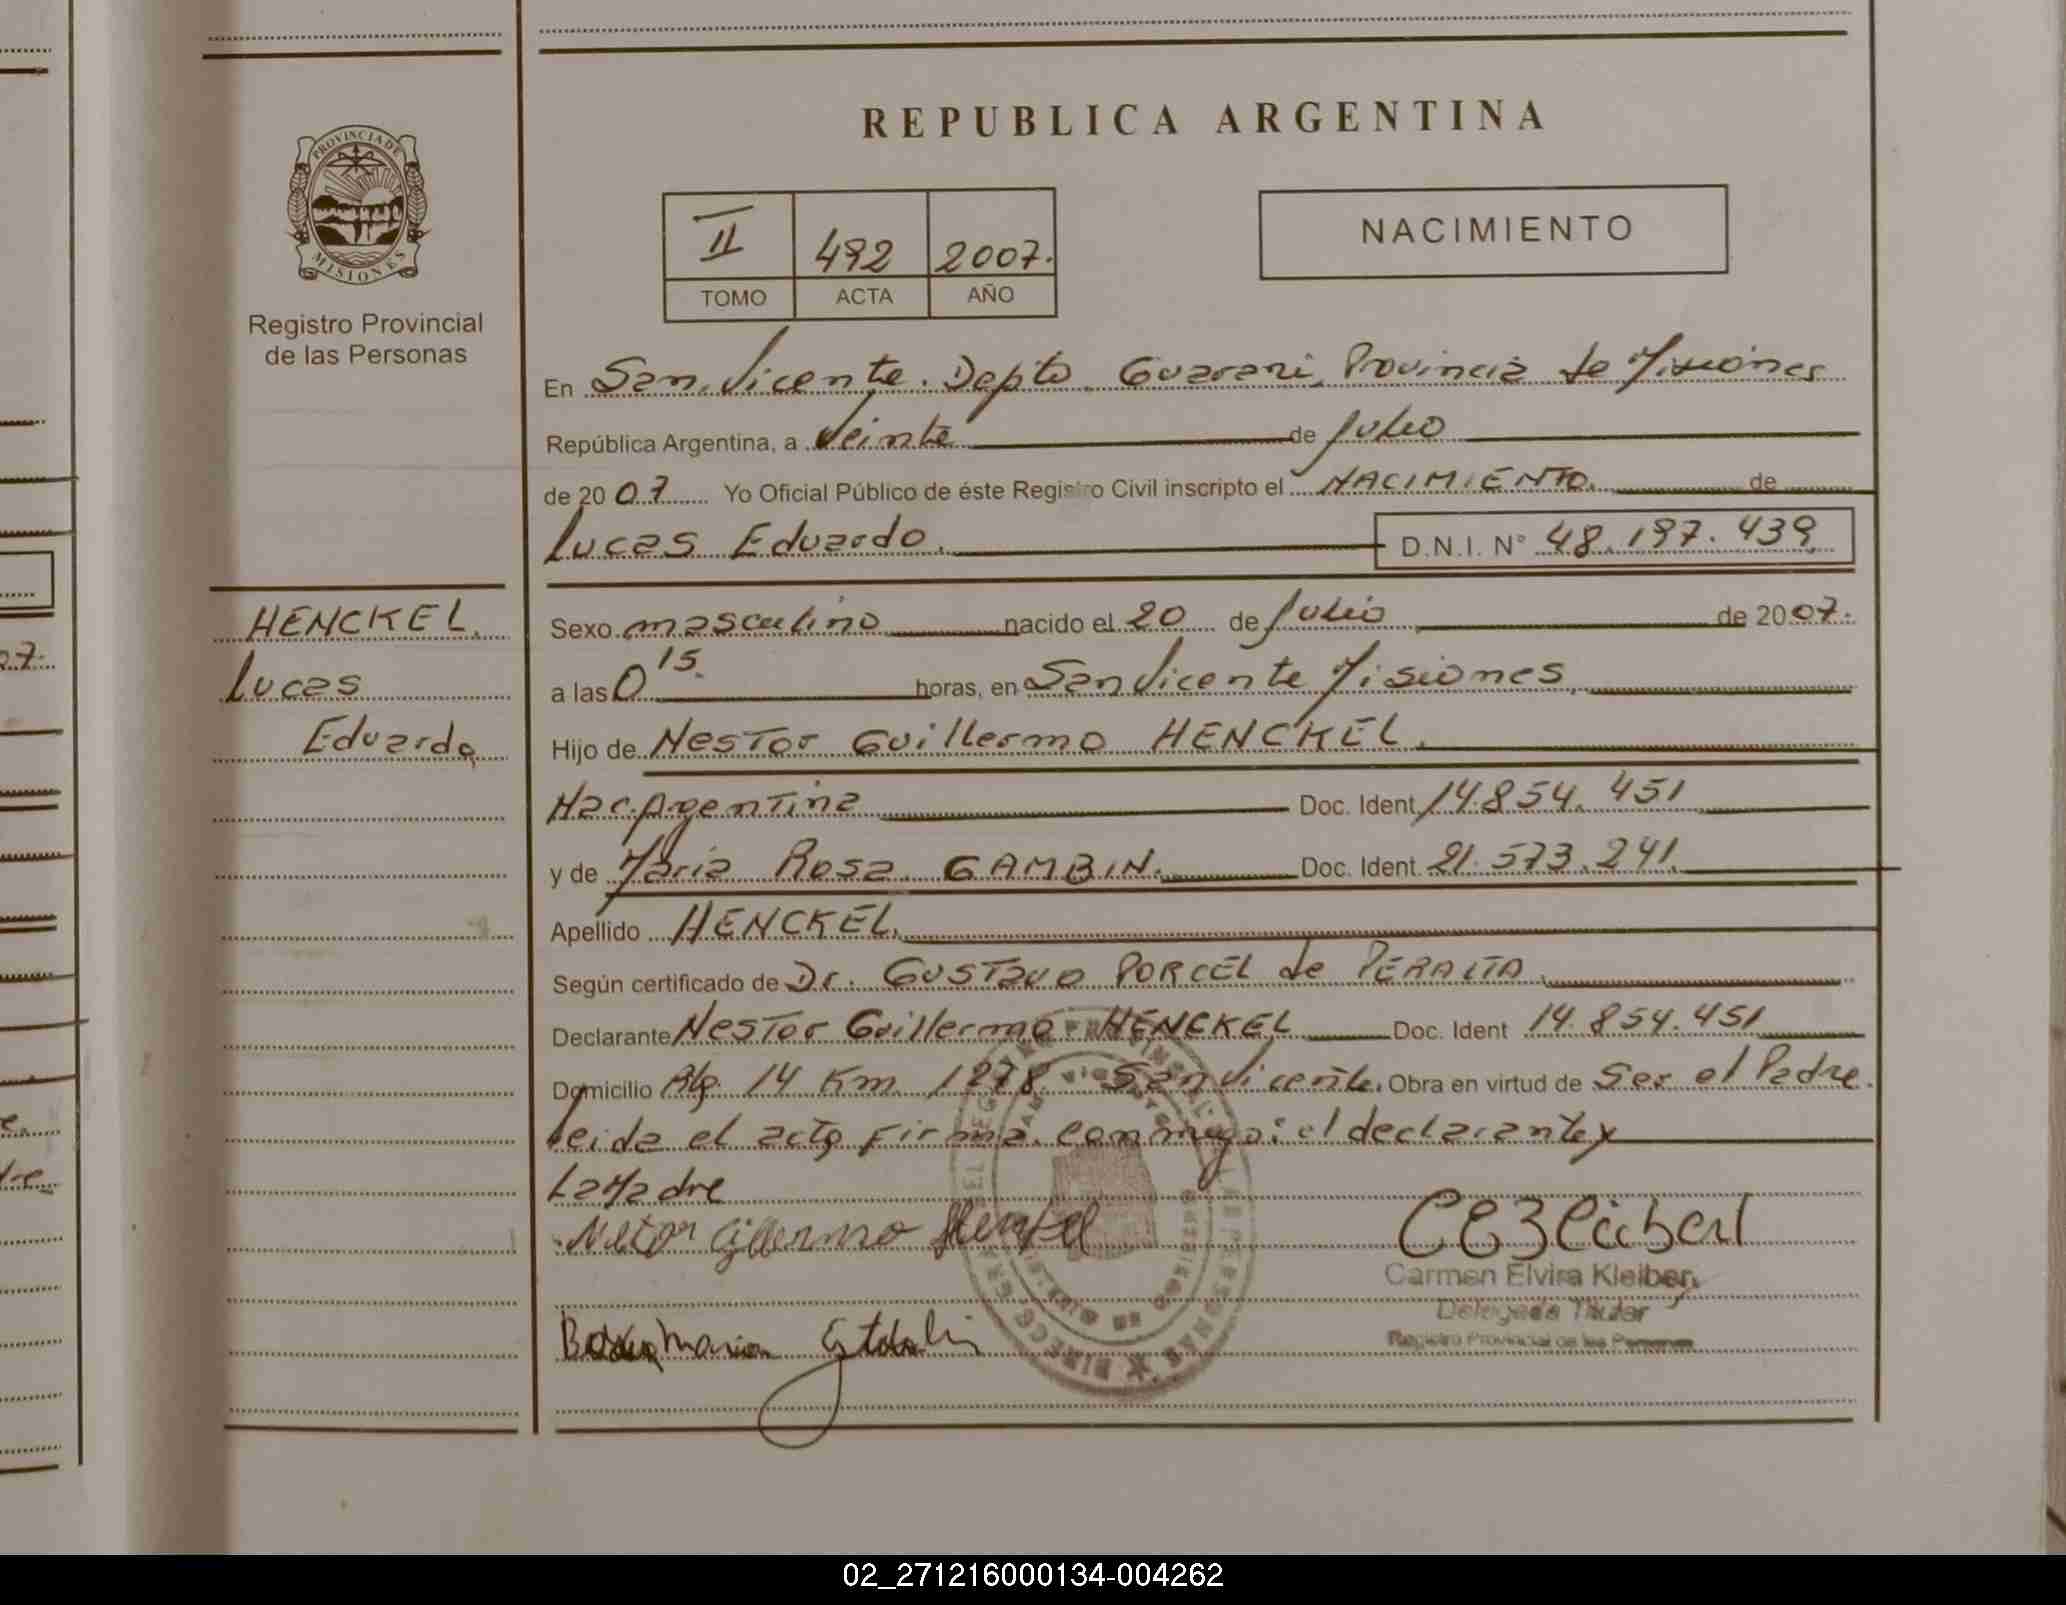 REPUBLICA ARGENTINA
PROVINCIA DE
MISIONES
Registro Provincial
de las Personas
II 492 2007.
TOMO ACTA AÑO
NACIMIENTO
En San Vicente. Depto. Guarani, Provincia de Misiones
República Argentina, a Veinte de Julio
de 2007 Yo Oficial Público de éste Registro Civil inscripto el NACIMIENTO. de
Lucas Eduardo. D.N.I. N° 48.197.439
HENCKEL.
Lucas
Eduardo
Sexo masculino nacido el 20 de Julio de 2007.
a las 0 15. horas, en San Vicente Misiones.
Hijo de Nestor Guillermo HENCKEL.
Nac. Argentina Doc. Ident 14.854.451
y de Maria Rosa GAMBIN. Doc. Ident. 21.573.241.
Apellido HENCKEL.
Según certificado de Dr. Gustavo PORCEL de PERALTA.
Declarante Nestor Guillermo HENCKEL Doc. Ident 14.854.451
Domicilio 14 Km. 1278. San Vicente. Obra en virtud de Ser el Padre.
Leida el acta Firma conmigo: el declarante y
La Madre
Carmen Elvira Kleiber
Delegada Titular
Registro Provincial de las Personas
02_271216000134-004262